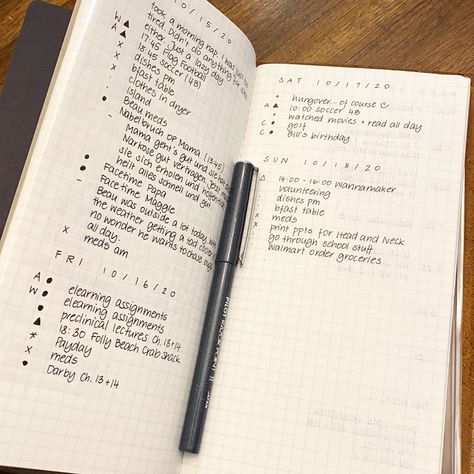 10/15/20
took a morning nap. I was just too
tired. Didn't do anything for school
either. Just a lazy day
W ▲ 17:45 Flag Football
A ▲ 18:45 soccer (4B)
x dishes pm
x bfast table
x clothes in dryer
· island
x Beau meds
● Nabelbruch OP Mama (13:45)
– Mama geht's gut und sie
Narkose gut vertragen.
sie sich erholen und
heilt alles schnell und gut
● Facetime Papa
● Facetime Maggie
– Beau was outside a lot today.
the weather getting a bit
no wonder he wants to
all day.
x meds am
FRI 10/16/20
A ● elearning assignments
W ● elearning assignments
● preclinical lectures Ch. 13+14
▲ 18:30 Folly Beach Crab Shack
* Payday
x meds
● Darby Ch. 13+14
PILOT RAZOR POINT II JAPAN
SAT 10/17/20
• hungover.. of course ☺
A ▲ 10:00 soccer 4B
• watched movies + read all day
C ● golf
C ● Bill's birthday
SUN 10/18/20
△ 14:00 - 16:00 Wannamaker
volunteering
· dishes pm
· bfast table
x meds
x print ppts for Head and Neck
go through school stuff
Walmart order groceries